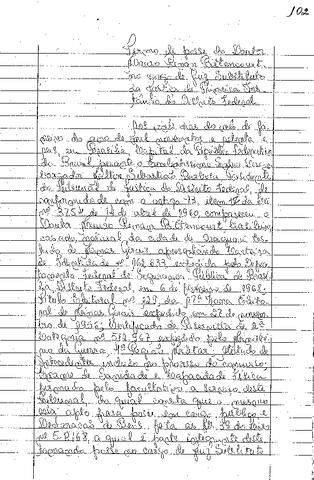 102
Termo de posse do Doutor
Romão Bittencourt,
no cargo de Juiz Substituto
da Justiça de Primeira Ins-
tância do Distrito Federal.
Aos dias do mês de ja-
neiro do ano de mil novecentos e setenta
em Brasília, Capital da República Federativa
do Brasil, perante o Excelentíssimo Senhor Desem-
bargador Sebastião Presidente
do Tribunal de Justiça do Distrito Federal, de
conformidade com o artigo 13, item da Lei
nº 3.754 de 14 de abril de 1960, compareceu o
Doutor Romão Bittencourt, brasileiro,
casado, natural da cidade de
de Minas Gerais, apresentando Carteira
de Identidade nº expedida pelo Depar-
tamento Federal de Segurança Pública de Brasí-
lia, Distrito Federal, em 6 de fevereiro de 1968.
Título Eleitoral nº da Zona Eleito-
ral de Minas Gerais, expedido em 27 de
de 1956; Certificado de Reservista de 2ª
categoria nº 512.967 expedido pelo Ministé-
rio da Guerra, Região Militar, Atestado de
antecedentes incluso no processo do concurso
de Sanidade e Capacidade Física
firmado pelo facultativo a serviço deste
Tribunal, do qual consta que o mesmo
está apto para posse em cargo público e
Declaração de Bens, feita às fls. do livro
nº a qual é parte integrante deste,
tomando posse no cargo de Juiz Substituto